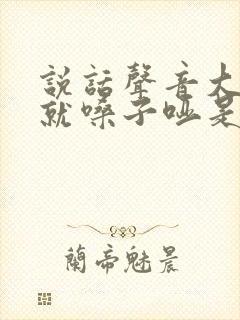 説話聲音大
就嗓子啞是
蘭帝魅晨